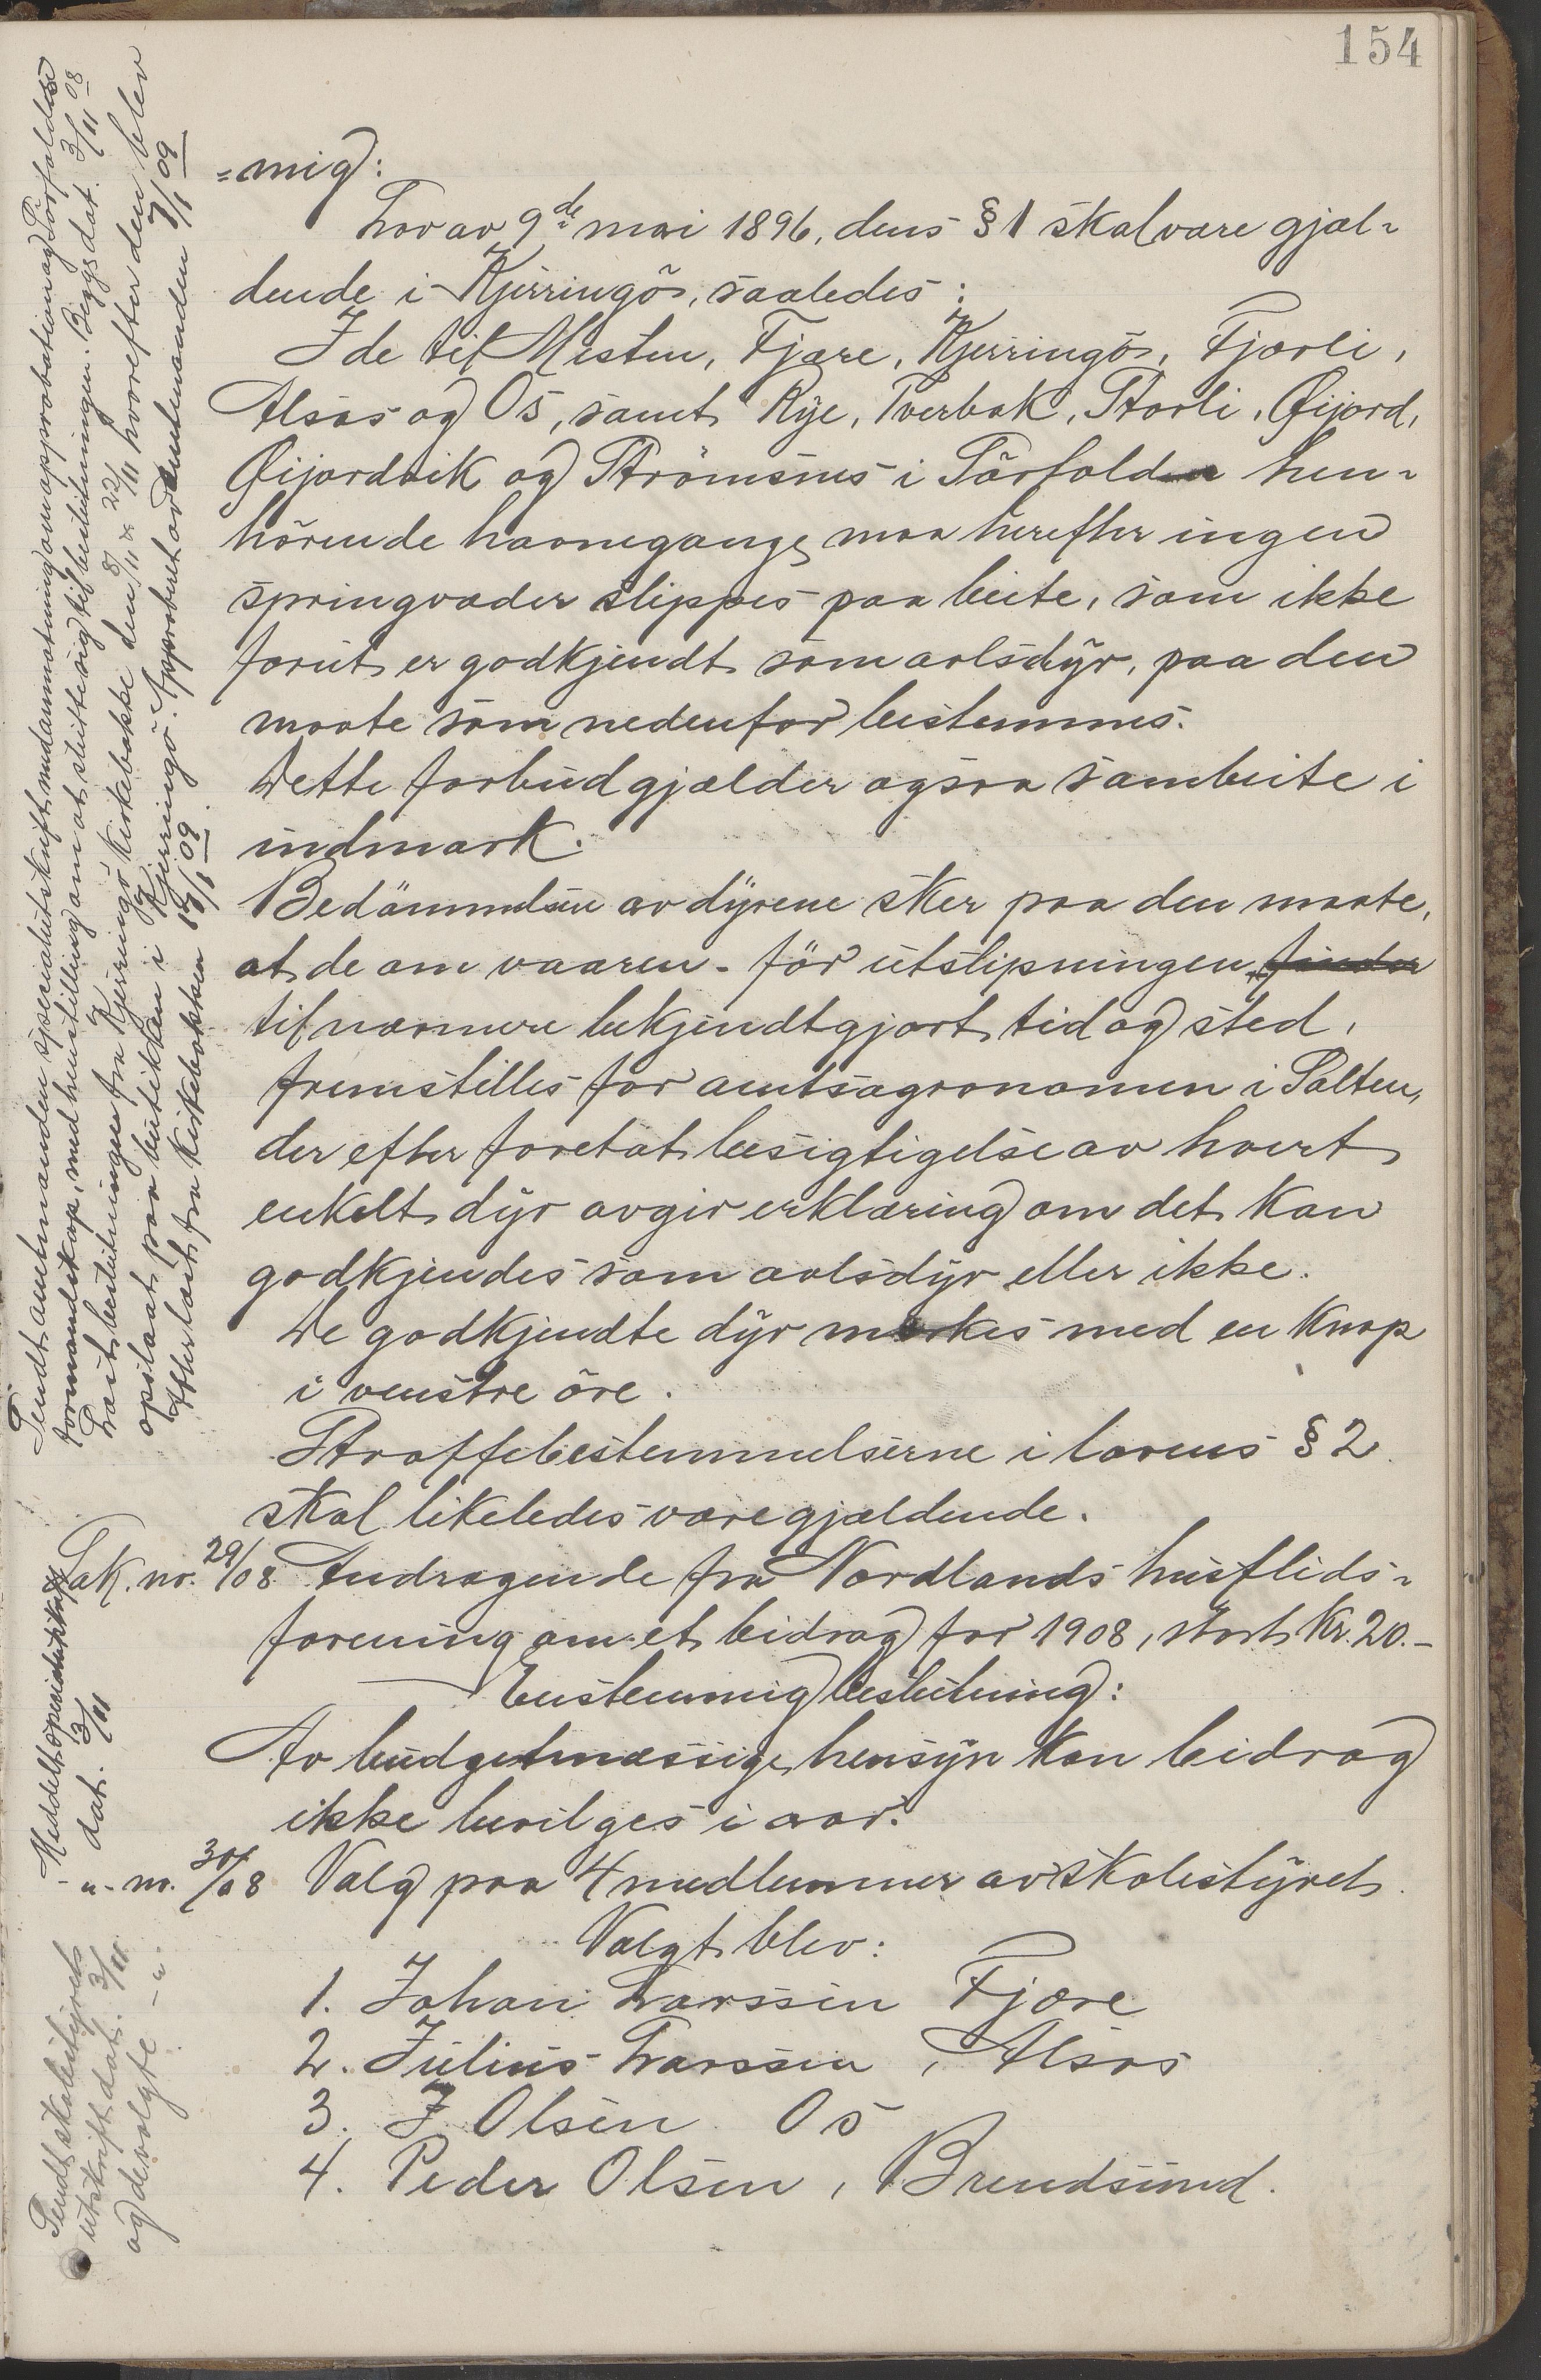 154
=mig:
Lov av 9de mai 1896, dens § 1 skal være gjæl-
dende i Kjerringö, saaledes:
I de til Mesten, Fjære, Kjerringö, Fjærli,
Alsos og Os, samt Rye, Tverbak, Storli, Øijord,
Øijordvik og Strömsnes i Sörfolden hen-
hörende havnegange maa herefter ingen
springvæder slippes paa beite, som ikke
forut er godkjendt som avlsdyr, paa den
maate som nedenfor bestemmes.
Dette forbud gjælder ogsaa sambeite i
indmark.
Bedömmelsen av dyrene sker paa den maate,
at de om vaaren - för utslipningen finder
til nærmere bekjendtgjort tid og sted,
fremstilles for amtsagronomen i Salten,
der efter foretat besigtigelse av hvert
enkelt dyr avgir erklæring om det kan
godkjendes som avlsdyr eller ikke.
De godkjendte dyr merkes med en knap
i venstre öre.
Straffebestemmelserne i lovens § 2
skal likeledes være gjældende.
Sak. nr. 29/08 Andragende fra Nordlands husflids-
forening om et bidrag for 1908, stort kr. 20.-
Enstemmig beslutning:
Av budgetmæssige hensyn kan bidrag
ikke bevilges i aar.
-"- nr. 30/08 Valg paa 4 medlemmer av skolestyret.
Valgt blev:
1. Johan Larssen Fjære
2. Julius Larssen, Alsos
3. J Olsen Os
4. Peder Olsen, Brendsund.
Sendt amtmanden specialutskrift med anmodning om approbation og Sörfoldens
formandskap, med henstilling om at slutte sig til beslutningen. Begge dat. 3/11 08
Læst beslutningen fra Kjerringö kirkebakke den 8/11 & 22/11 hvorefter den blev
opslaat paa butikken i Kjerringö. Approbert av amtmanden 7/1 09
Atter læst fra kirkebakken 17/1 09.
Meddelt ved utskrift
dat. 3/11
Sendt skolestyret
utskrift dat. 3/11
og de valgte -"-